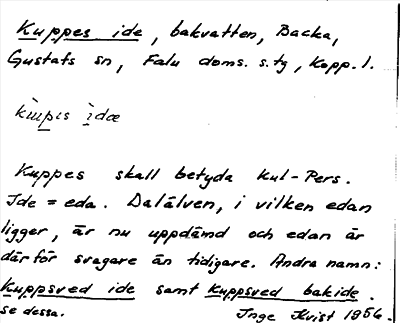 Kuppes ide, bakvatten, Backa,
Gustafs sn, Falu doms. s. tg, Kopp. l.
kùp̲ıs ìdæ
Kuppes skall betyda Kul-Pers.
Ide = eda. Dalälven, i vilken edan
ligger, är nu uppdämd och edan är
därför svagare än tidigare. Andra namn:
Kuppsved ide samt Kuppsved bakide.
se dessa. Inge Kvist 1956.